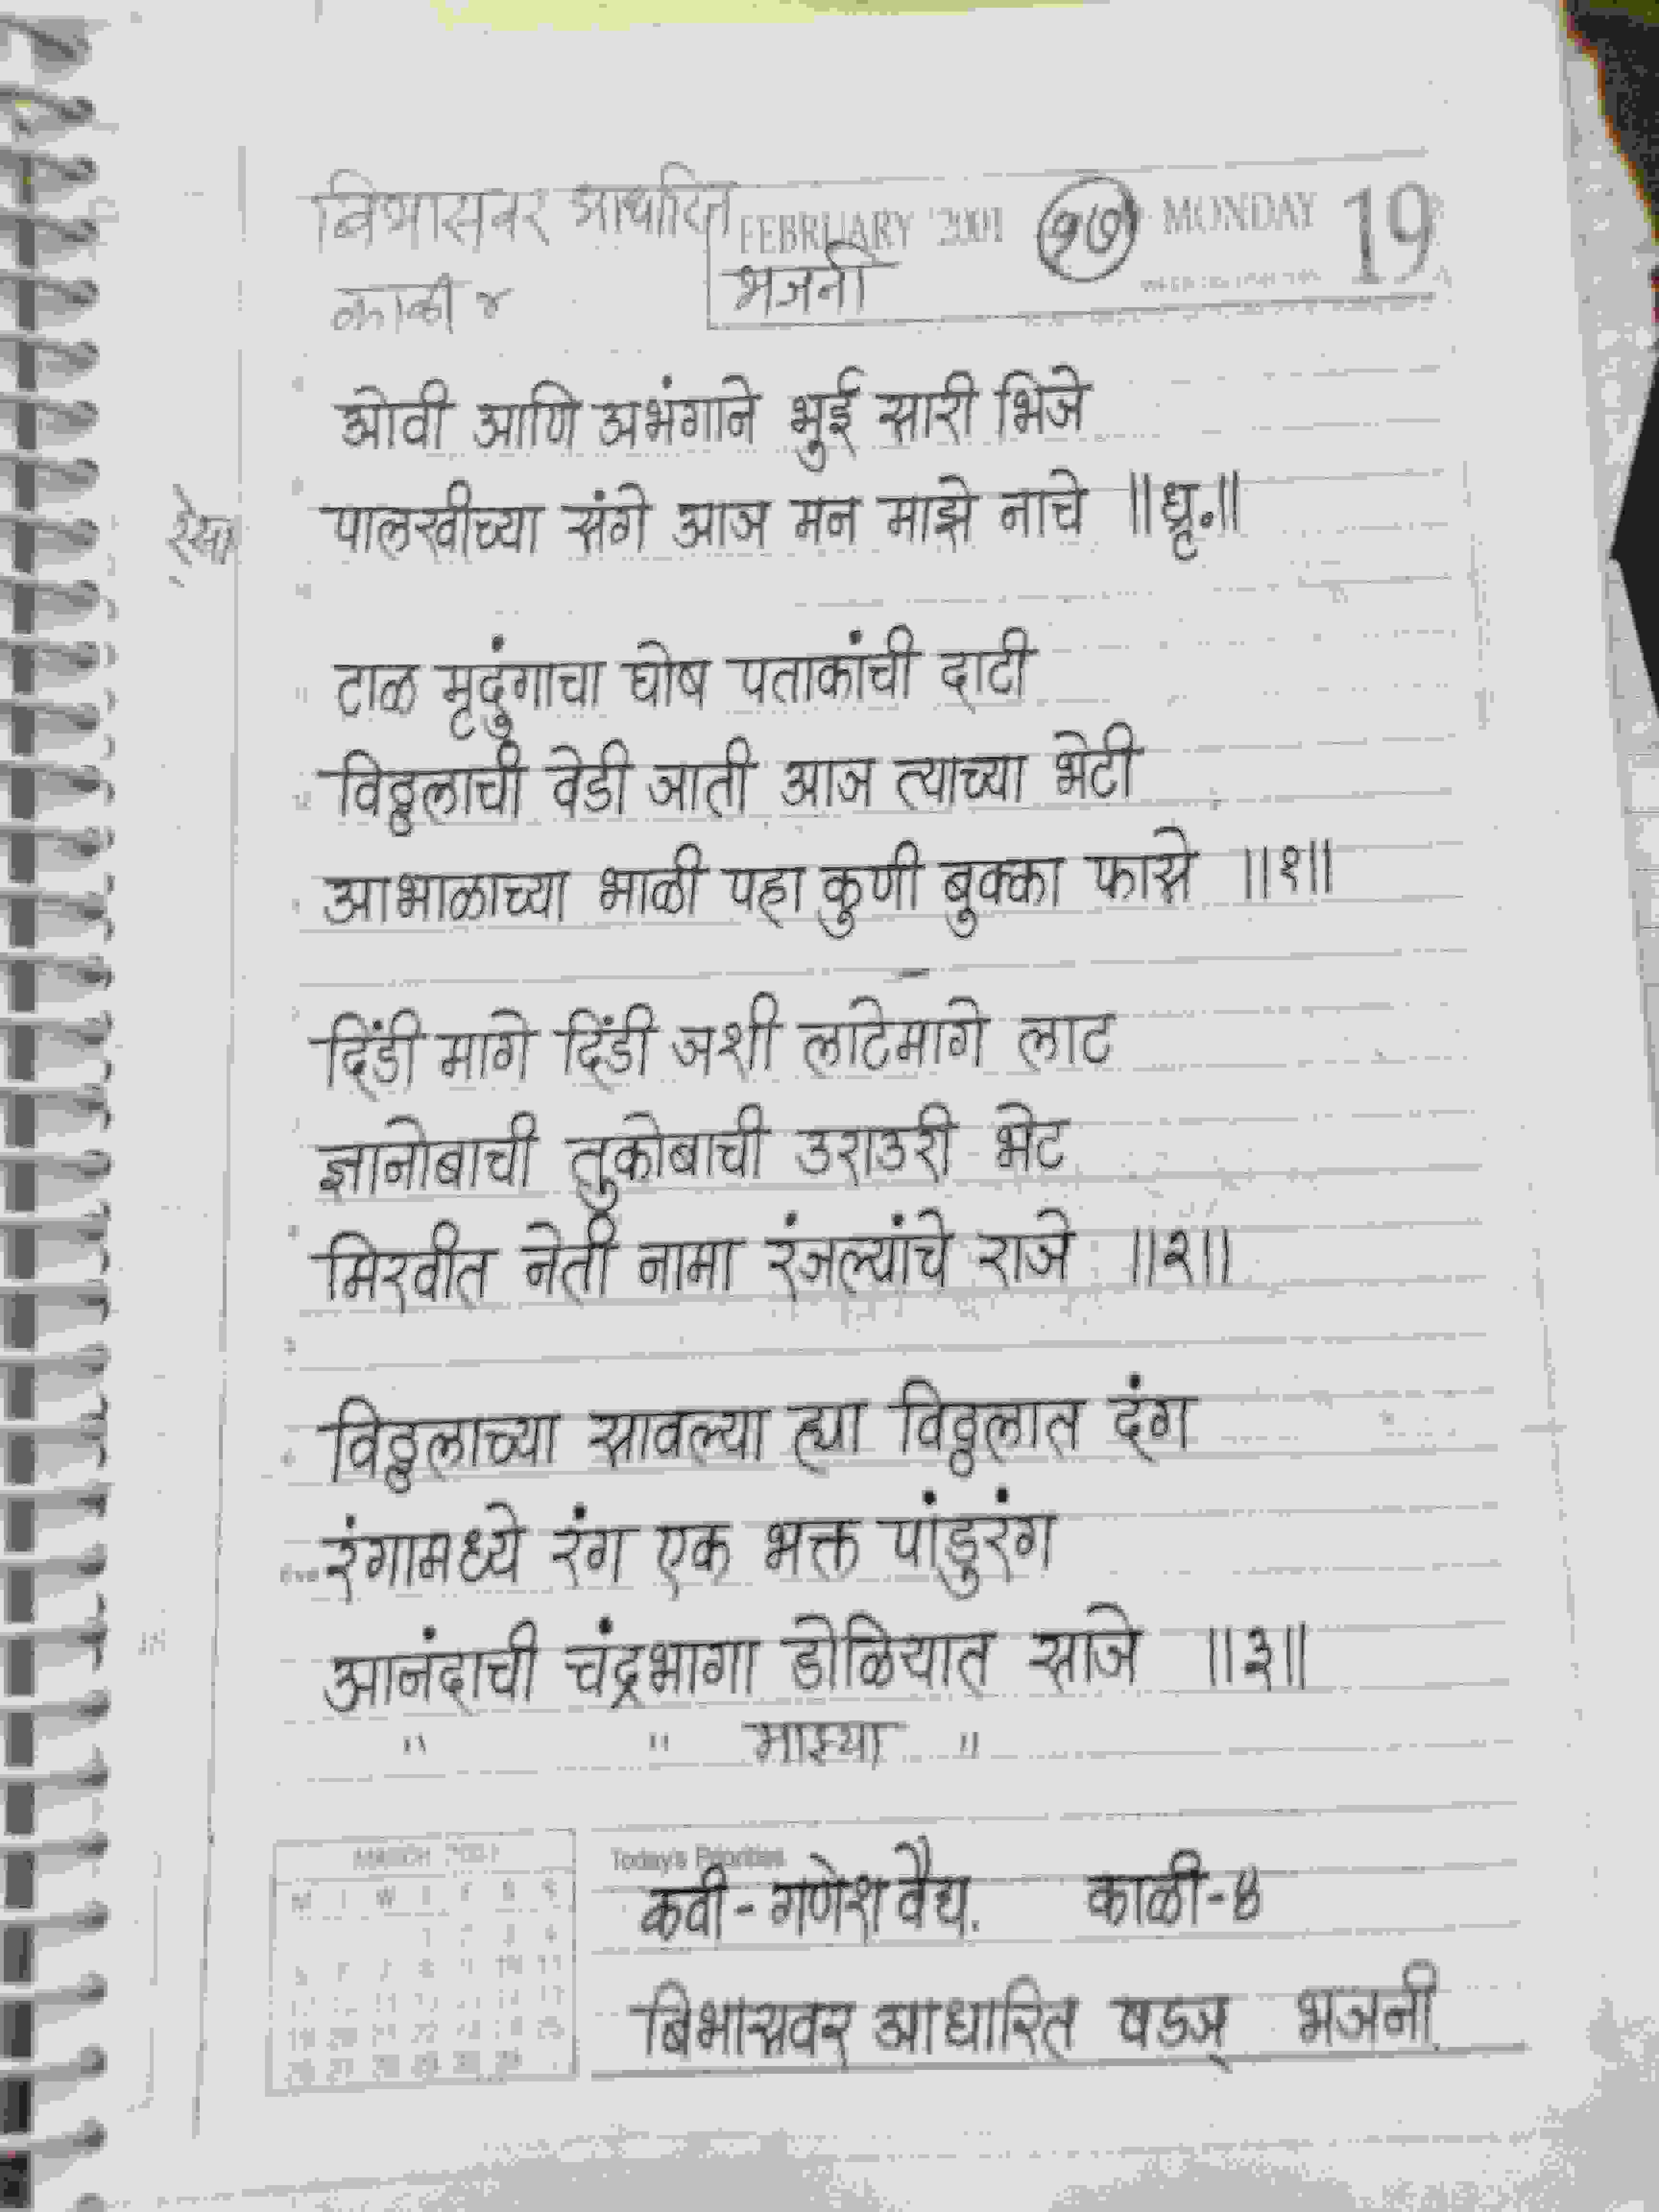 बिभासवर आधारित FEBRUARY '2001 १७ MONDAY 19
काळी ४ भजनी
ओवी आणि अभंगाने भुई सारी भिजे
पालखीच्या संगे आज मन माझे नाचे ॥धृ.॥
टाळ मृदुंगाचा घोष पताकांची दाटी
विठ्ठलाची वेडी जाती आज त्याच्या भेटी
आभाळाच्या भाळी पहा कुणी बुक्का फासे ॥१॥
दिंडी मागे दिंडी जशी लाटेमागे लाट
ज्ञानोबाची तुकोबाची उराउरी भेट
मिरवीत नेती नामा रंजल्यांचे राजे ॥२॥
विठ्ठलाच्या सावल्या ह्या विठ्ठलात दंग
रंगामध्ये रंग एक भक्त पांडुरंग
आनंदाची चंद्रभागा डोळियात साजे ॥३॥
" " माझ्या "
MARCH 2001 Today's Priorities
कवी - गणेश वैद्य. काळी - ४
बिभासवर आधारित षड्ज भजनी